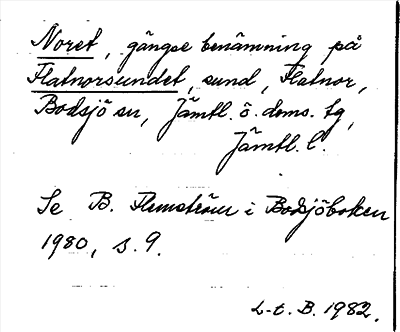 Noret, gängse benämning på
Flatnorsundet, sund, Flatnor,
Bodsjö sn, Jämtl. ö. doms. tg,
Jämtl. l.
Se B. Flemström i Bodsjöboken
1980, s. 9.
L-t. B. 1982.